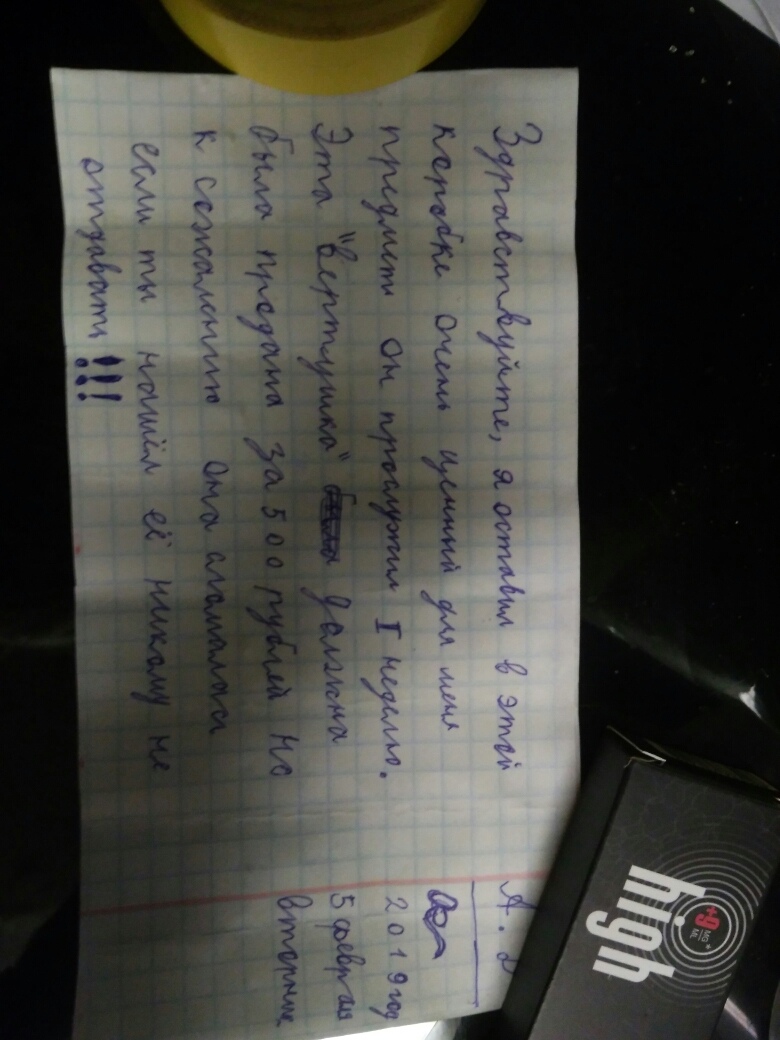 Здравствуйте, я оставил в этой
коробке очень ценный для меня
предмет он прослужил 1 неделю.
Эта "вертушка" должна
была продана за 500 рублей но
к сожалению она сломалась
если ты нашёл её никому не
отдавать!!!
А.
2019 год
5 февраля
вторник
high
+9
MG
ML